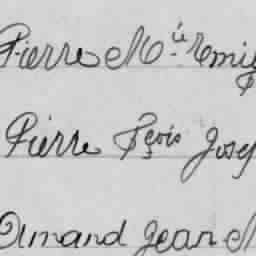 Pierre Mie Remi
Pierre Fçois Josep
Armand Jean M